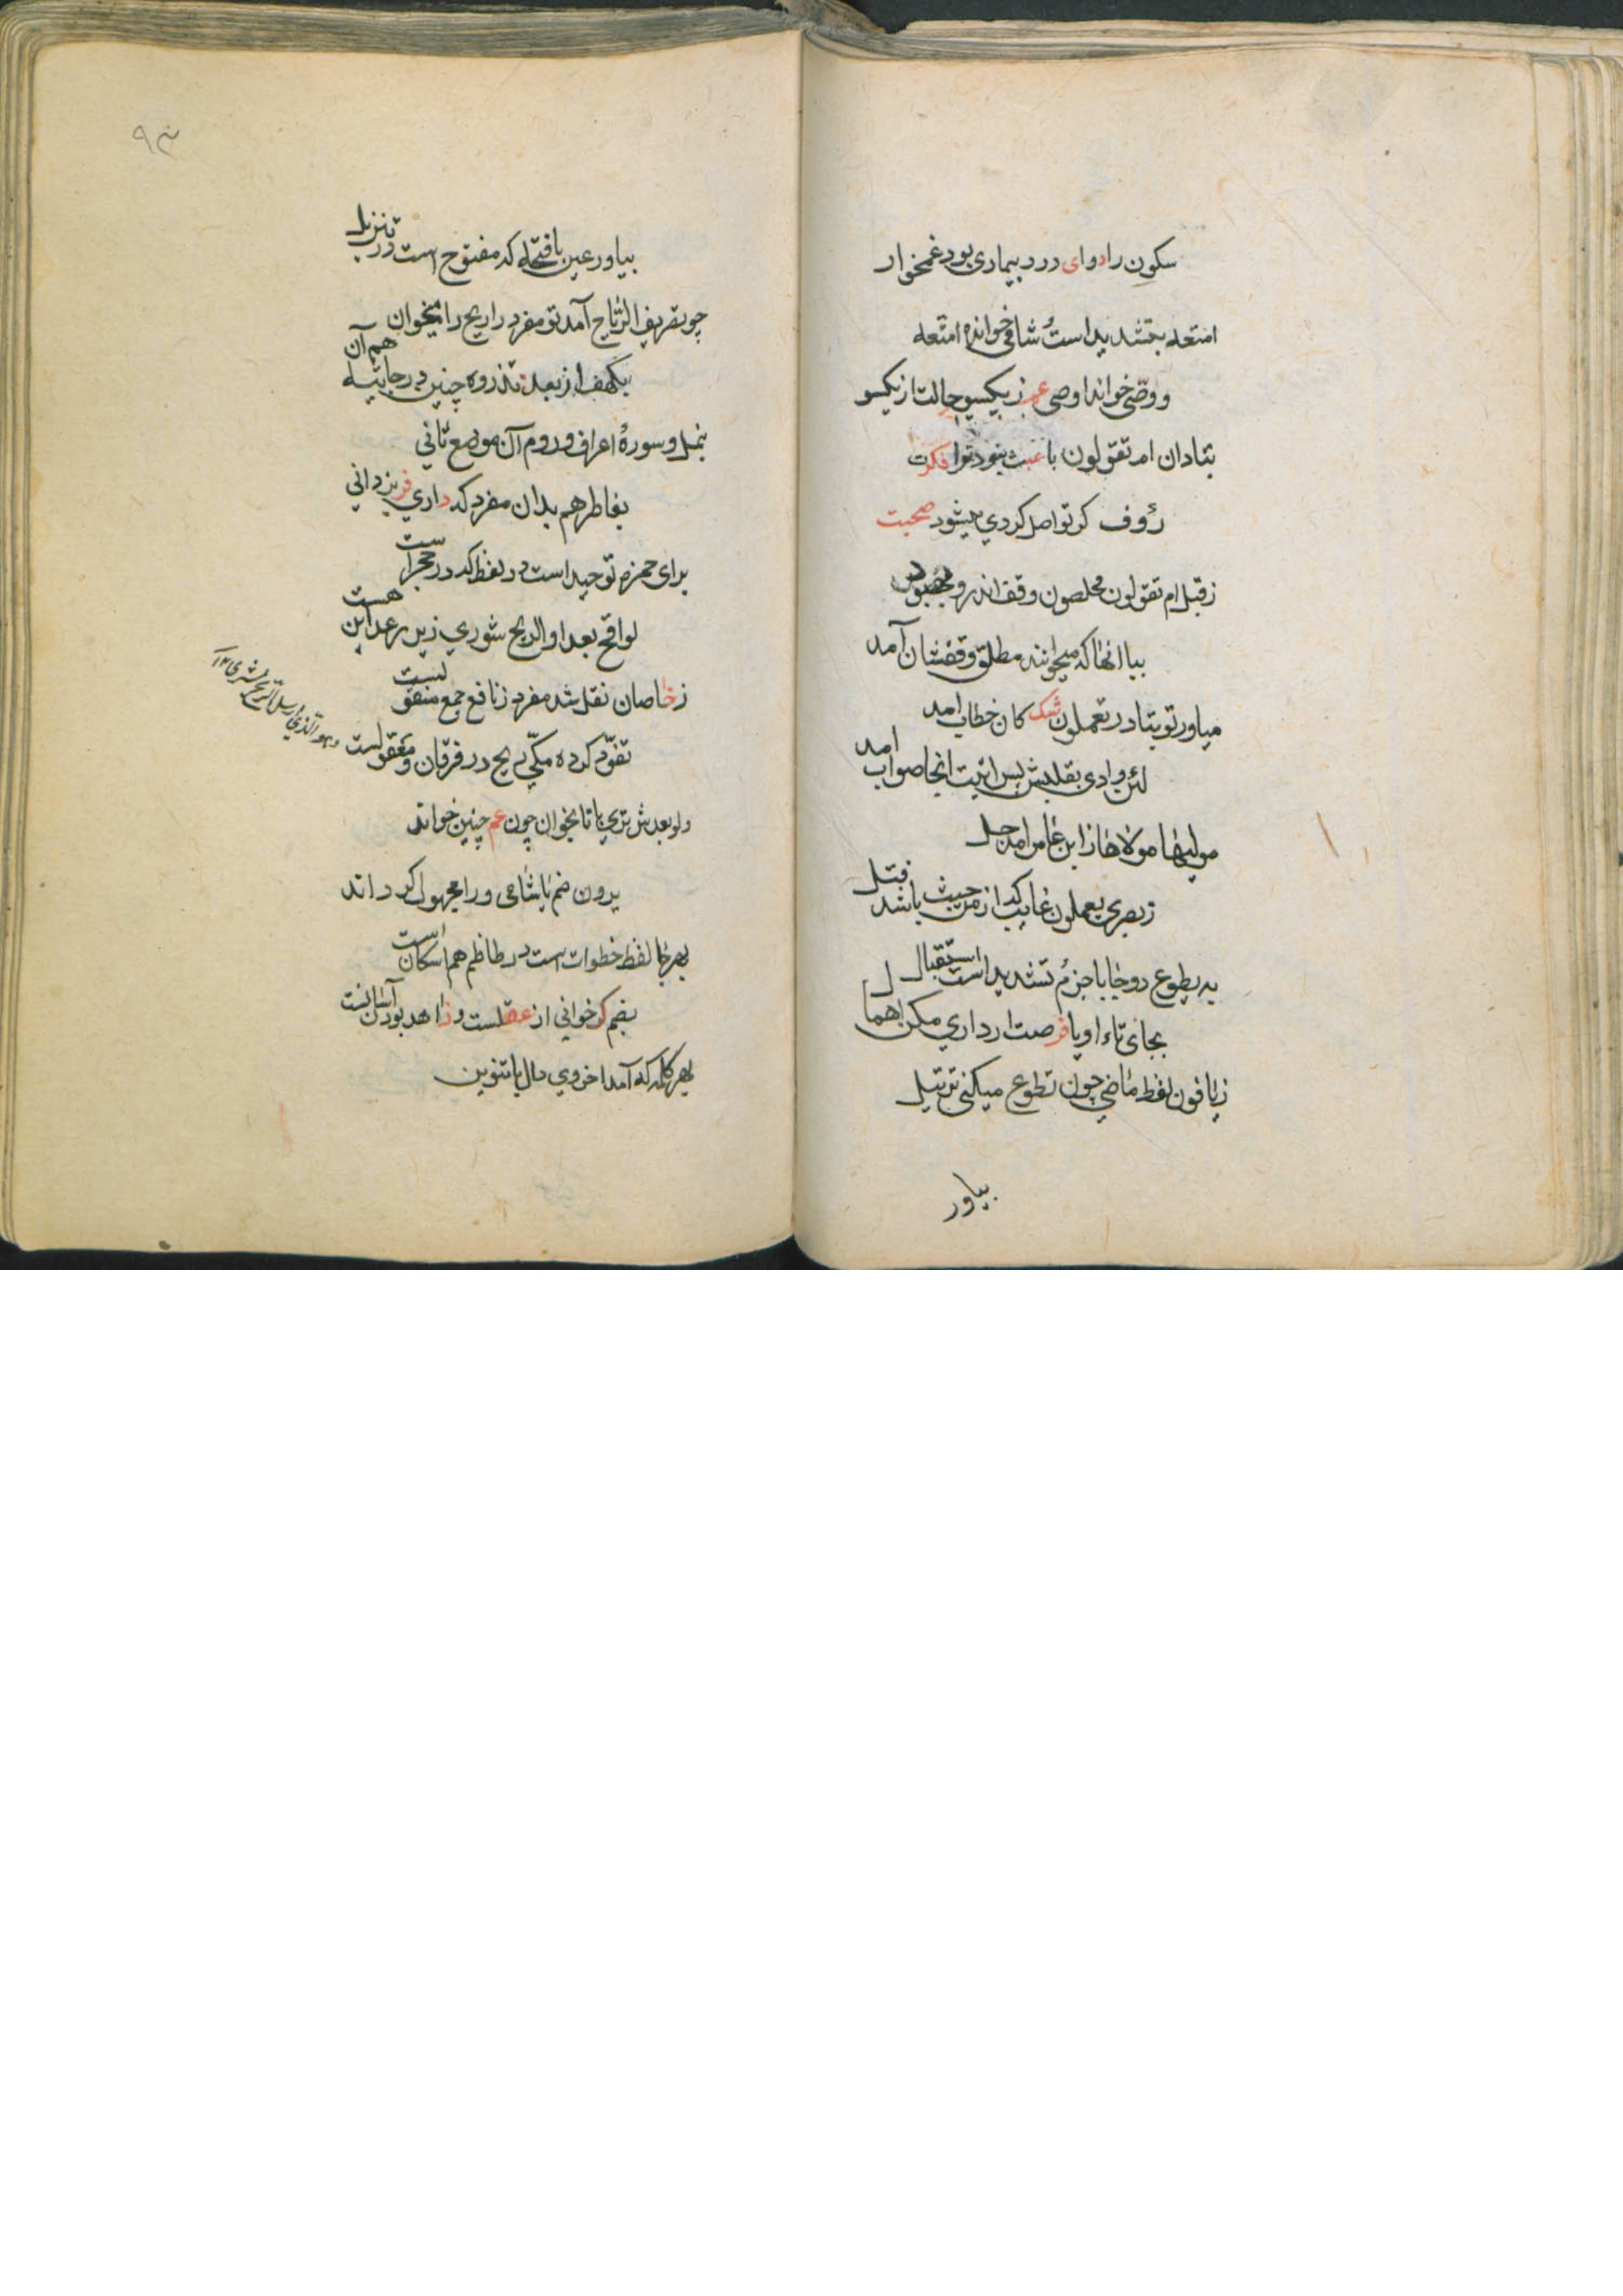 سکون را دوای درد بیماری بود غمخوار
امتعه بتشدید است شامی خوانده امتعه
ووصی خواند اوصی عم ز یکسو حالت از یکسو
بتا دان ام تقولون با عبث بنود ترا فکرت
رؤف کر تواصل کردی میشود صحبت
ز قبل ام تقولون مخلصون وقف اندرو
بیا انها که میخوانند مطلق وقفشان آمد
میاور تو بتا در تعملون شک کان خطاب امد
لئن وادی بقلبش پس اتیت انجا صواب امد
مولیها مولاها ز ابن عامر امد حل
ز بصری یعملون غایب که از من حیث باشد قبل
به یطوع دو جا با جزم تشدید است استقبال
بجای تاء او یا فرصت ار داری مکن اهمال
ز باقون لفظ ماضی چون تطوع میکنی ترتیل
بیاور
۹۳
بیاور عین با فتحه که مفتوح است در تنزیل
چو تصریف الریاح آمد تو مفرد راریح را میخوان
بکهف از بعد تذروه چنین در جاثیه هم آن
بنمل و سورهٔ اعراف و روم آن موضع ثانی
بفاطر هم بدان مفرد که داری فر یزدانی
برای حمزه توحید است در لفظ که در حجر است
لواقح بعد او الریح شوری زیر رعد این هست
ز خاصان نقل شد مفرد ز نافع جمع منقولست
تفرد کرده مکی ریح در فرقان و معقولست
ولو بعدش تری با تا بخوان چون عم چنین خواند
یرون ضم یا شامی ورا مجهول کرداند
بهر جا لفظ خطوات است در طا ظم هم اسکان است
بضم کر خوانی از عقلست و زاهد بودن آسانست
بهر کلمه که آمد اخروی دال یا تنوین
وهو الذی ارسل الریح بشری ۱۲